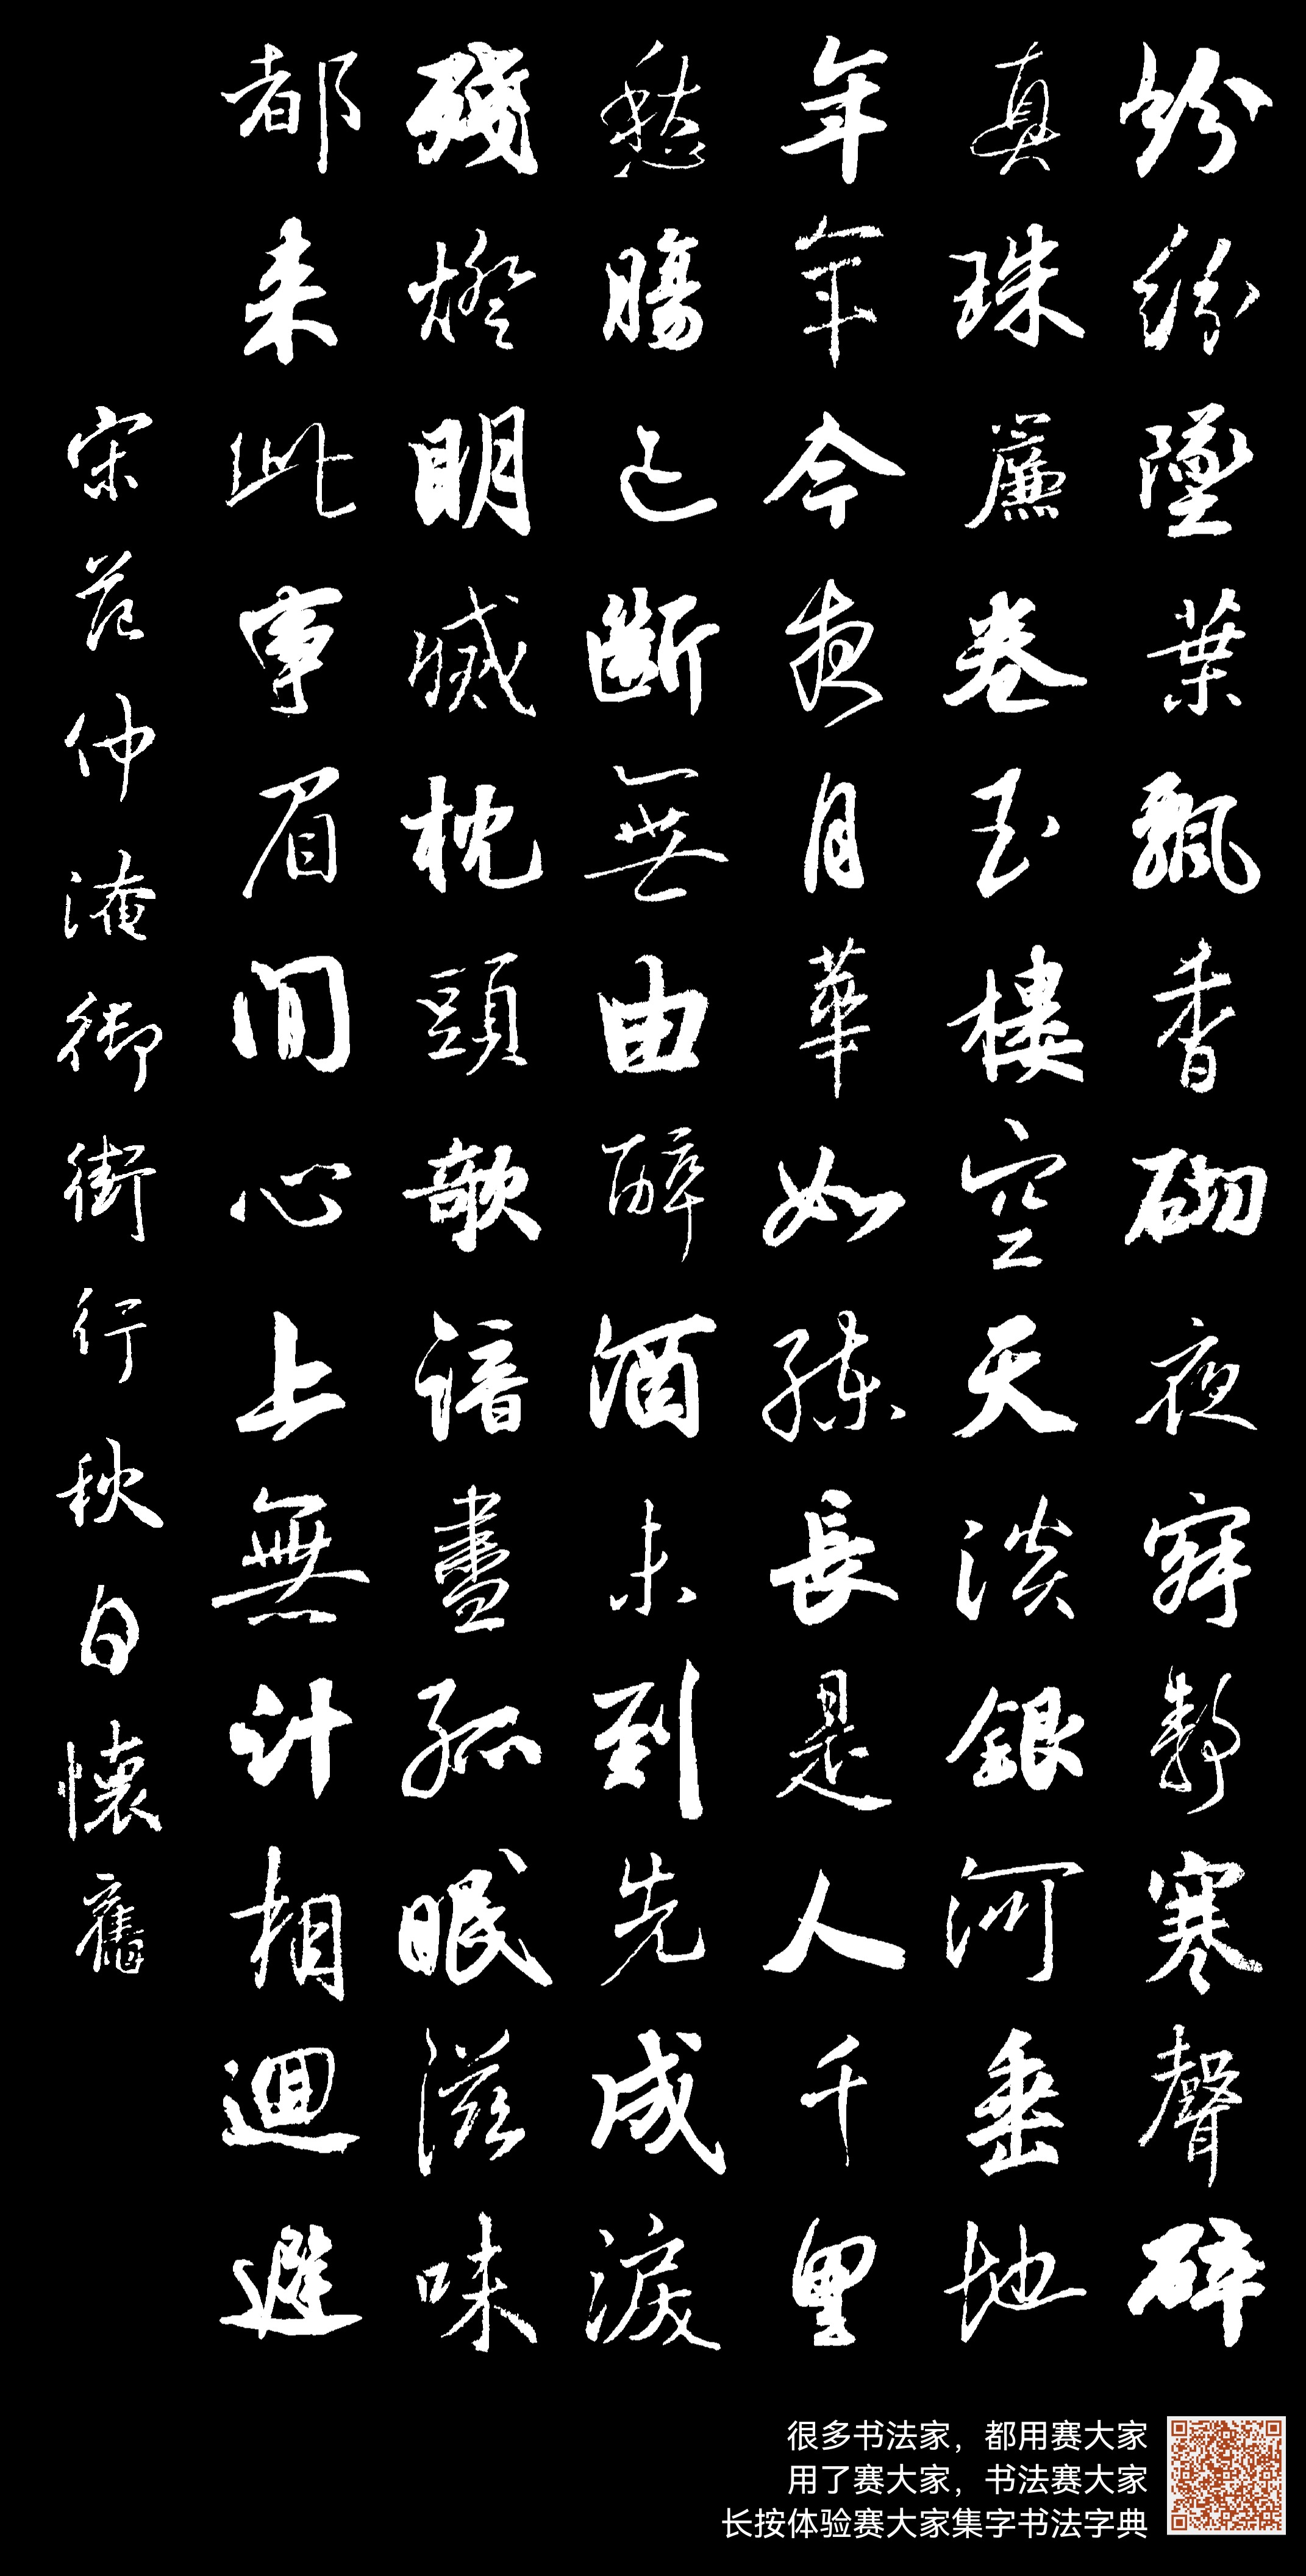 紛紛墜葉飄香砌夜寂靜寒聲碎
真珠簾卷玉樓空天淡銀河垂地
年年今夜月華如練長是人千里
愁腸已斷無由醉酒未到先成淚
殘燈明滅枕頭欹諳盡孤眠滋味
都来此事眉間心上無計相迴避
宋范仲淹御街行秋日懷舊
很多书法家，都用赛大家
用了赛大家，书法赛大家
长按体验赛大家集字书法字典